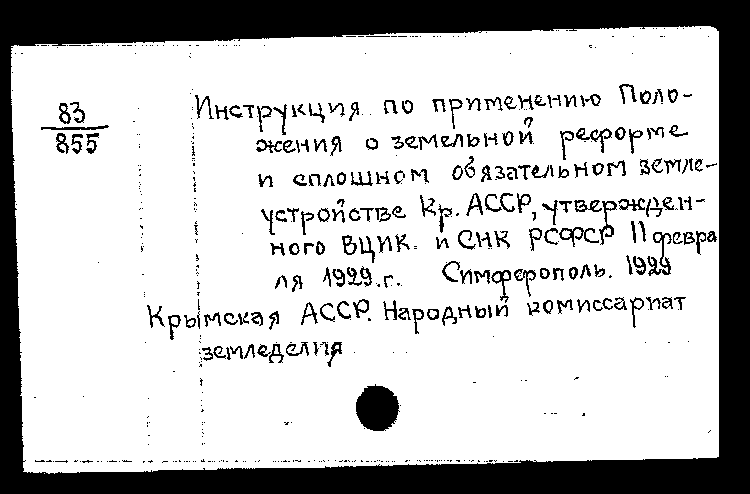 83
855
Инструкция по применению Поло-
жения о земельной реформе
и сплошном обязательном земле-
устройстве Кр. АССР, утвержден-
ного ВЦИК. и СНК РСФСР 11 февра
ля 1929.г. Симферополь. 1929
Крымская АССР. Народный комиссариат
земледелия